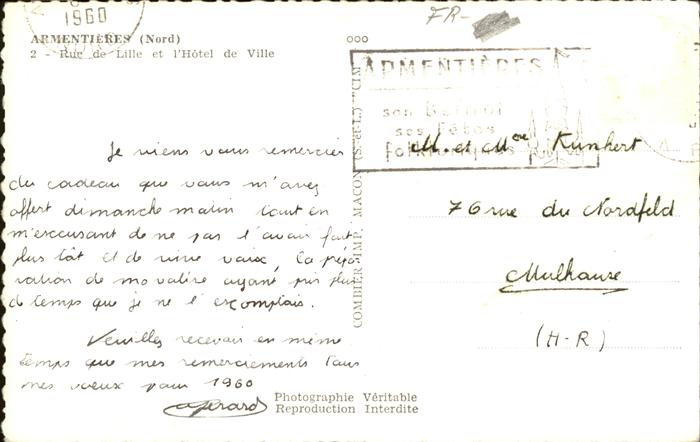 1960
FR-
ARMENTIÈRES (Nord)
2 - Rue de Lille et l'Hôtel de Ville
ARMENTIÈRES
son Beffroi
ses Fêtes
folkloriques
COMBIER IMP. MACON (S.-et-L.) "CIM
Je viens vous remercier
du cadeau que vous m'avez
offert dimanche matin tout en
m'excusant de ne pas l'avoir fait
plus tôt et de vive voix, la prépa
ration de ma valise ayant pris plus
de temps que je ne l'escomptais.
Veuillez recevoir en même
temps que mes remerciements tous
mes voeux pour 1960
M. et Mme Kunhert
76 rue du Nordfeld
Mulhouse
(H-R)
Photographie Véritable
Reproduction Interdite